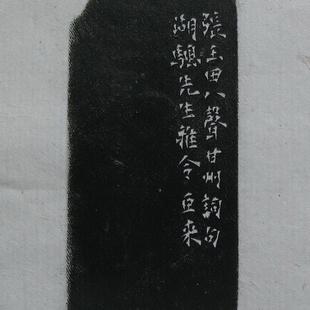 張玉田八聲甘州詞句
湖驄先生雅令亞来